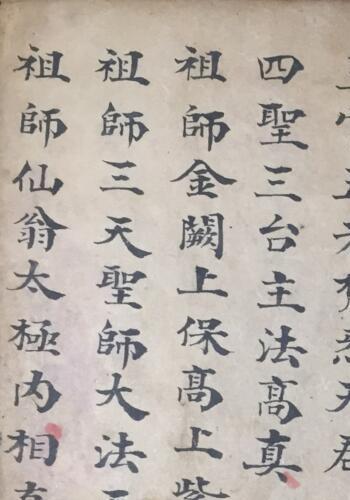 天君
四聖三台主法高真
祖師金闕上保高上紫
祖師三天聖師大法
祖師仙翁太極内相真